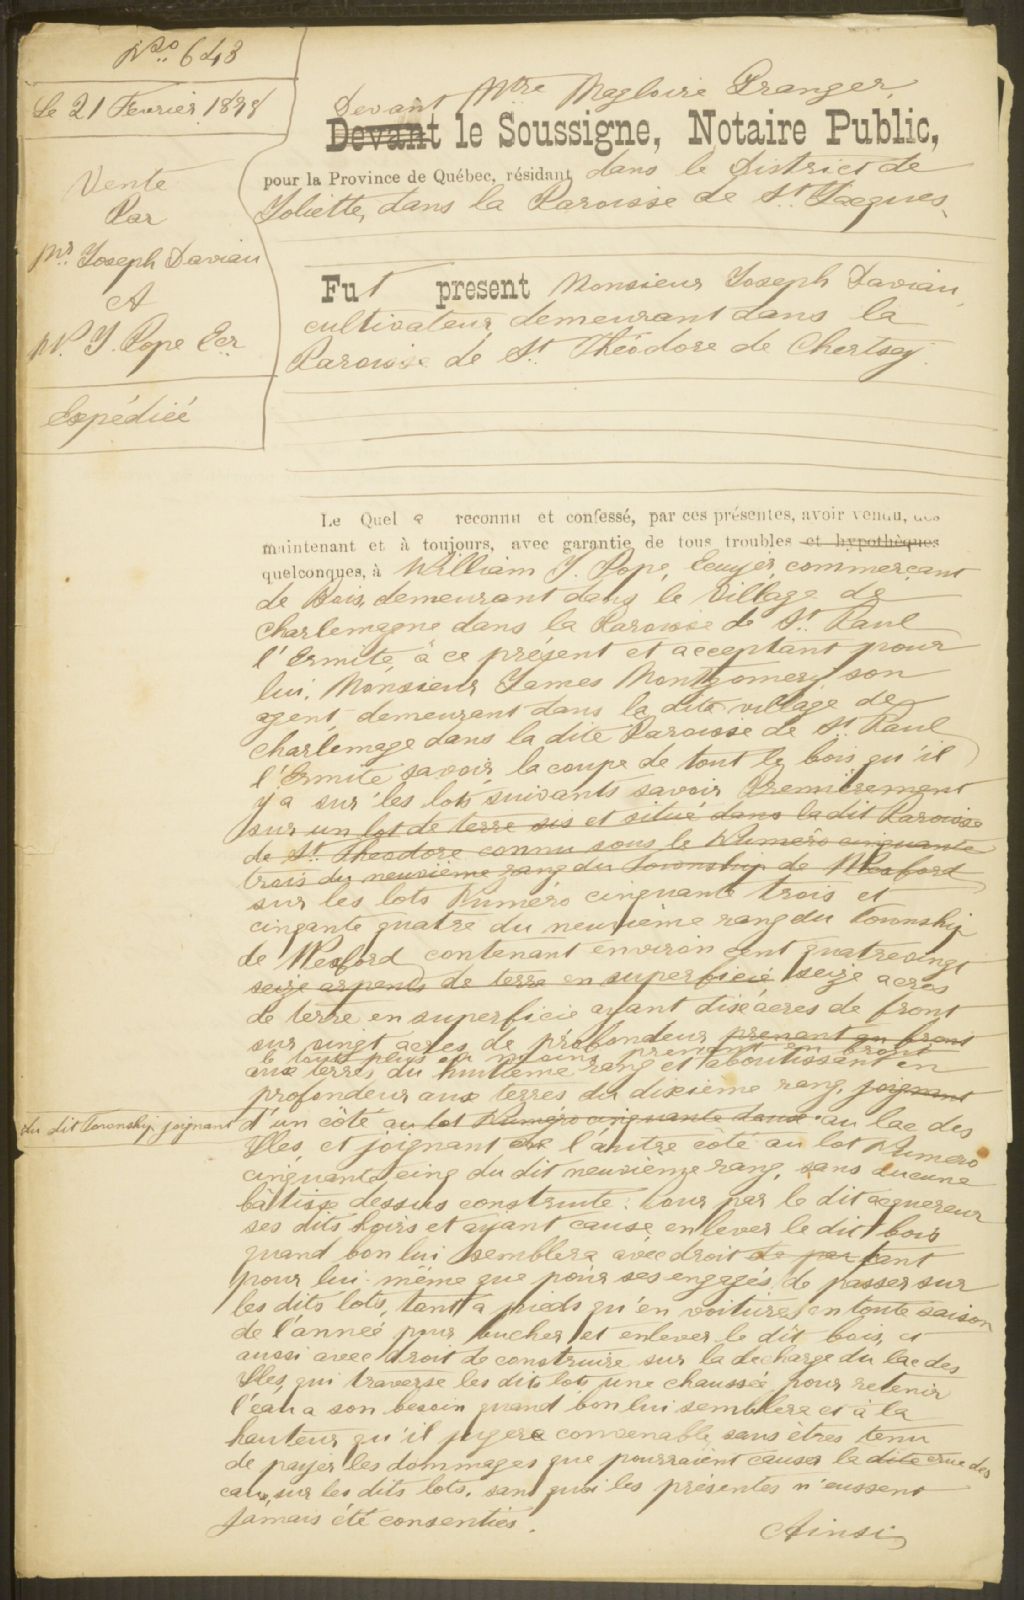 No. 643
Le 21 Fevrier 1898
Vente
Par
Mr. Joseph Daviau
A
W. J. Pope Ecr
Expédiéé
Devant Mtre Magloire Granger,
Devant le Soussigne, Notaire Public,
pour la Province de Québec, résidant dans le District de
Joliette, dans la Paroisse de St. Jacques,
Fut present Monsieur Joseph Daviau,
cultivateur, demeurant dans la
Paroisse de St. Théodore de Chertsey.
Le Quel a reconnu et confessé, par ces présentes, avoir vendu, des
maintenant et à toujours, avec garantie de tous troubles et hypothèques
quelconques, à William J. Pope, Ecuyer, commerçant
de Bois, demeurant dans le Village de
Charlemagne dans la Paroisse de St. Paul
l'Ermite, à ce présent et acceptant pour
lui, Monsieur James Montgomery, son
agent, demeurant dans la dite village de
Charlemage dans la dite Paroisse de St. Paul
l'Ermite savoir, la coupe de tout le bois qu'il
y a sur les lots suivants savoir Premièrement
sur un lot de terre sis et situé dans la dit Paroisse
de St. Theodore connu sous le Numéro cinquante
trois du neuvième rang du Township de Wexford
sur les lots Numéro cinquante trois et
cinqante quatre du neuvième rang du Township
de Wexford contenant environ cent quatrevingt
seize arpents de terre en superficie, seize acres
de terre en superficie ayant dix acres de front
sur vingt acres de profondeur prenant en front
le tout plus ou moins, prenant en front
aux terres du huitième rang et aboutissant en
profondeur aux terres du dixième rang, joignant
du dit Township, joignant d'un côté au lot Numéro cinquante deux au lac des
Iles, et joignant de l'autre côté au lot Numero
cinquante cinq du dit neuvième rang, sans aucune
bâtisse dessus construite: Pour par le dit acquereur
ses dits hoirs et ayant cause, enlever le dit bois
quand bon lui semblera avec droit tant
pour lui-même que pour ses engagés, de passer sur
les dits lots, tant a pieds qu'en voiture, en toute saison
de l'année pour bucher et enlever le dit bois, et
aussi avec droit de construire sur la decharge du lac des
Iles, qui traverse les dits lots une chaussée pour retenir
l'eau a son besoin quand bon lui semblera et à la
hauteur qu'il jugera convenable, sans êtres tenu
de payer les dommages que pourraient causer la dite crue des
eaux, sur les dits lots, sans quoi les présentes n'eussent
jamais été consenties.
Ainsi